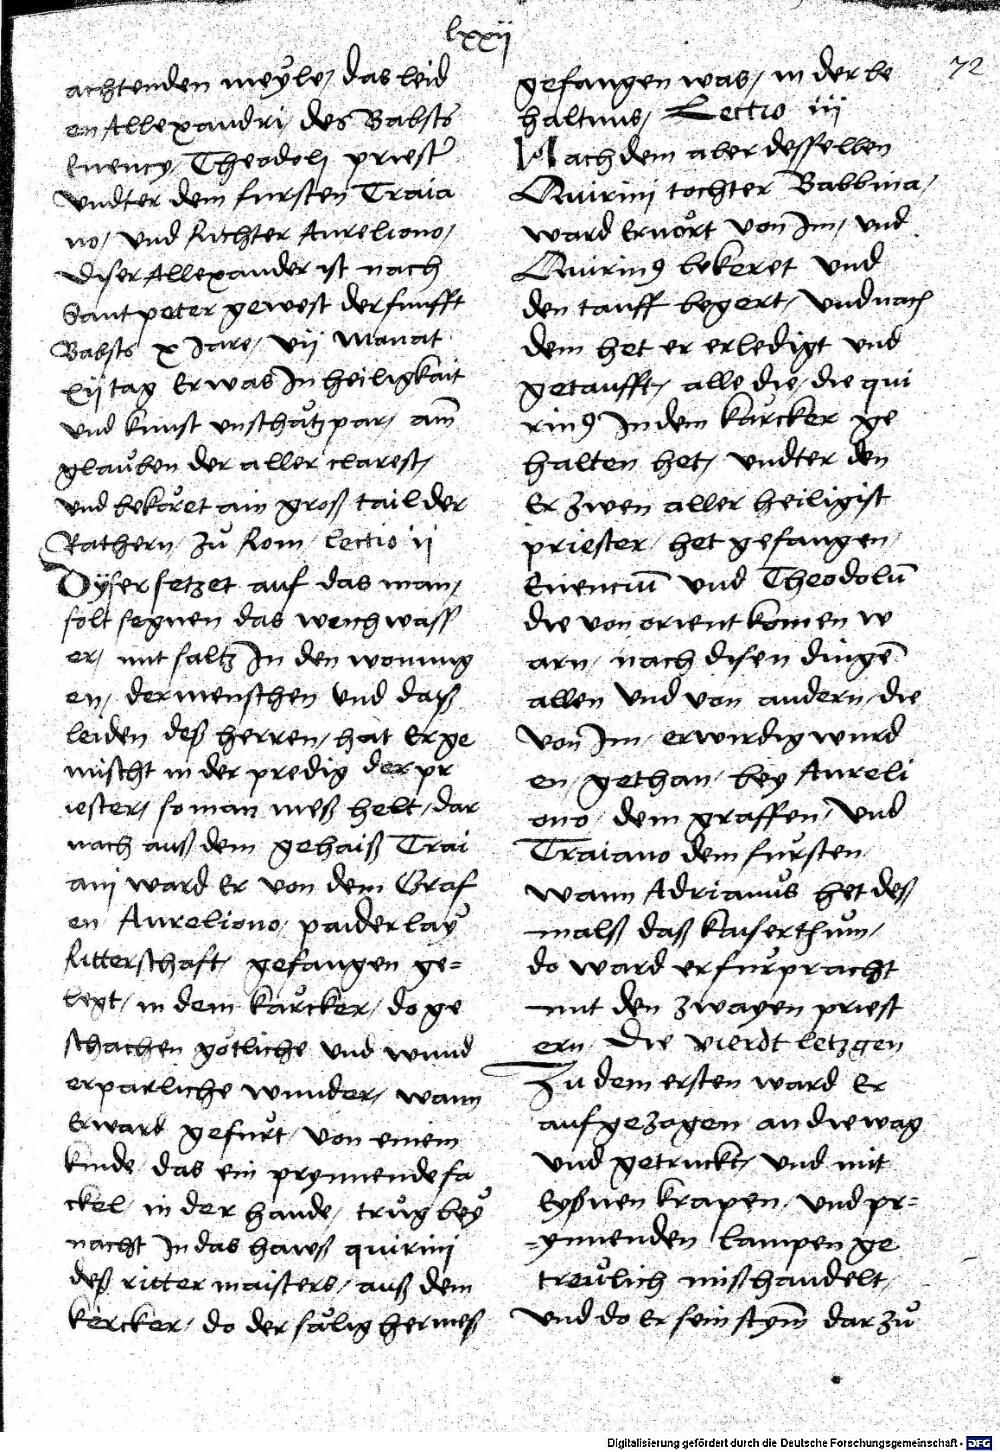 lxxij
72
achtenden meyle, das leid
en Allexandri, des Babsts
Euency, Theodolj priester
vndter dem fursten Traia
no, vnd Richter Aureliono,
diser Allexander ist nach
Sant peter gewest der funfft
Babsts x Jare, vij Manat
xij tag Er was Jn heiligkait
vnd kunst vnschätzpar, am̄
glauben der aller clarest,
vnd bekȯret ain groß tail der
Rathern, zů Rom, lectio ij
Dÿser setzet auf das man,
solt segnen das weichwass
er, mit saltz Jn den wonung
en, der menschen vnd daß
leiden deß herren, hat Er ge
mischt in der predig der pr
iester, so man meß helt, dar
nach auß dem gehaiß Trai
anj ward Er von dem Graf
en Aureliono, paiderlaÿ
Ritterschaft, gefangen ge=
legt, in dem kärcker, do ge
schachen götliche vnd wund
erparliche wunder, wann
Er ward gefůrt, von einem
kinde, das ein prynnende fa
ckel, in der hande, trůg beÿ
nacht Jn das hawß quirinj
deß rittermaisters, auß dem
kercker, do der sälig hermeß
gefangen was, in der be
haltnus, Lectio iij
Nach dem aber desselben
Quirinj tochter Babbina,
ward Ernört von Jm, vnd
Quirin9 bekeret vnd
den tauff begert, vnd nach
dem het er erledigt vnd
getaufft, alle die, die qui
rin9 Jn dem kärcker ge
halten het, vndter den
Er zwen aller heiligist
priester, het gefangen,
Euenciū vnd Theodolū
die von orient komen w
arn, nach disen dingē
allen vnd von andern, die
von Jm, erwirdig wurd
en, gethan, bey Aureli
ono, dem graffen, vnd
Traiano dem fürsten,
wann Adrianus het deß
malß daß kaiserthům,
do ward er fůrpracht
mit den zwayen priest
ern, Die vierdt letzgen
Zu dem ersten ward Er
aufgezogen an die wag
vnd getruckt, vnd mit
Eyßnen krapen, vnd pr=
=ynnenden lampen ge
treülich mißhandelt,
vnd do Er sein stym̄ dar zů
Digitalisierung gefördert durch die Deutsche Forschungsgemeinschaft - DFG